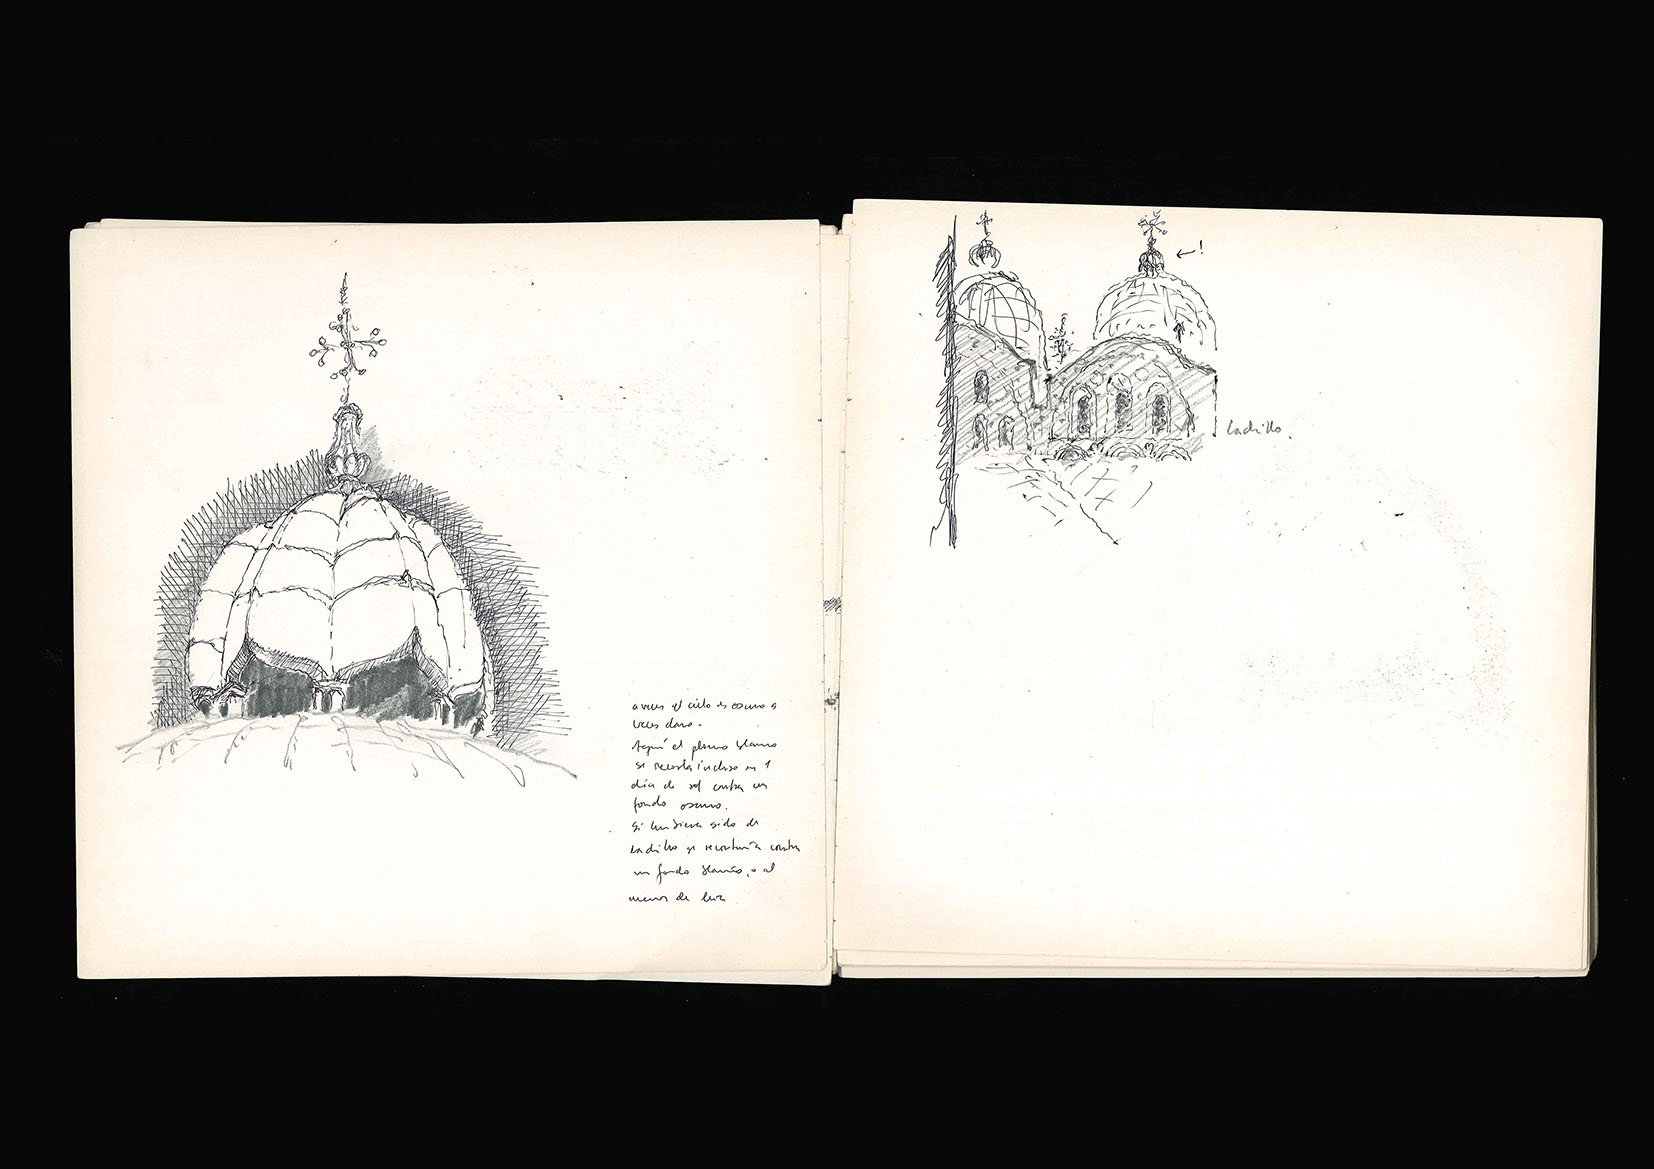 a veces el cielo es oscuro a
veces claro.
Aquí el plano blanco
se recorta incluso en 1
día de sol contra un
fondo oscuro.
Si hubiera sido de
ladrillo se recortaría contra
un fondo blanco, o al
menos de luz
← !
ladrillo.